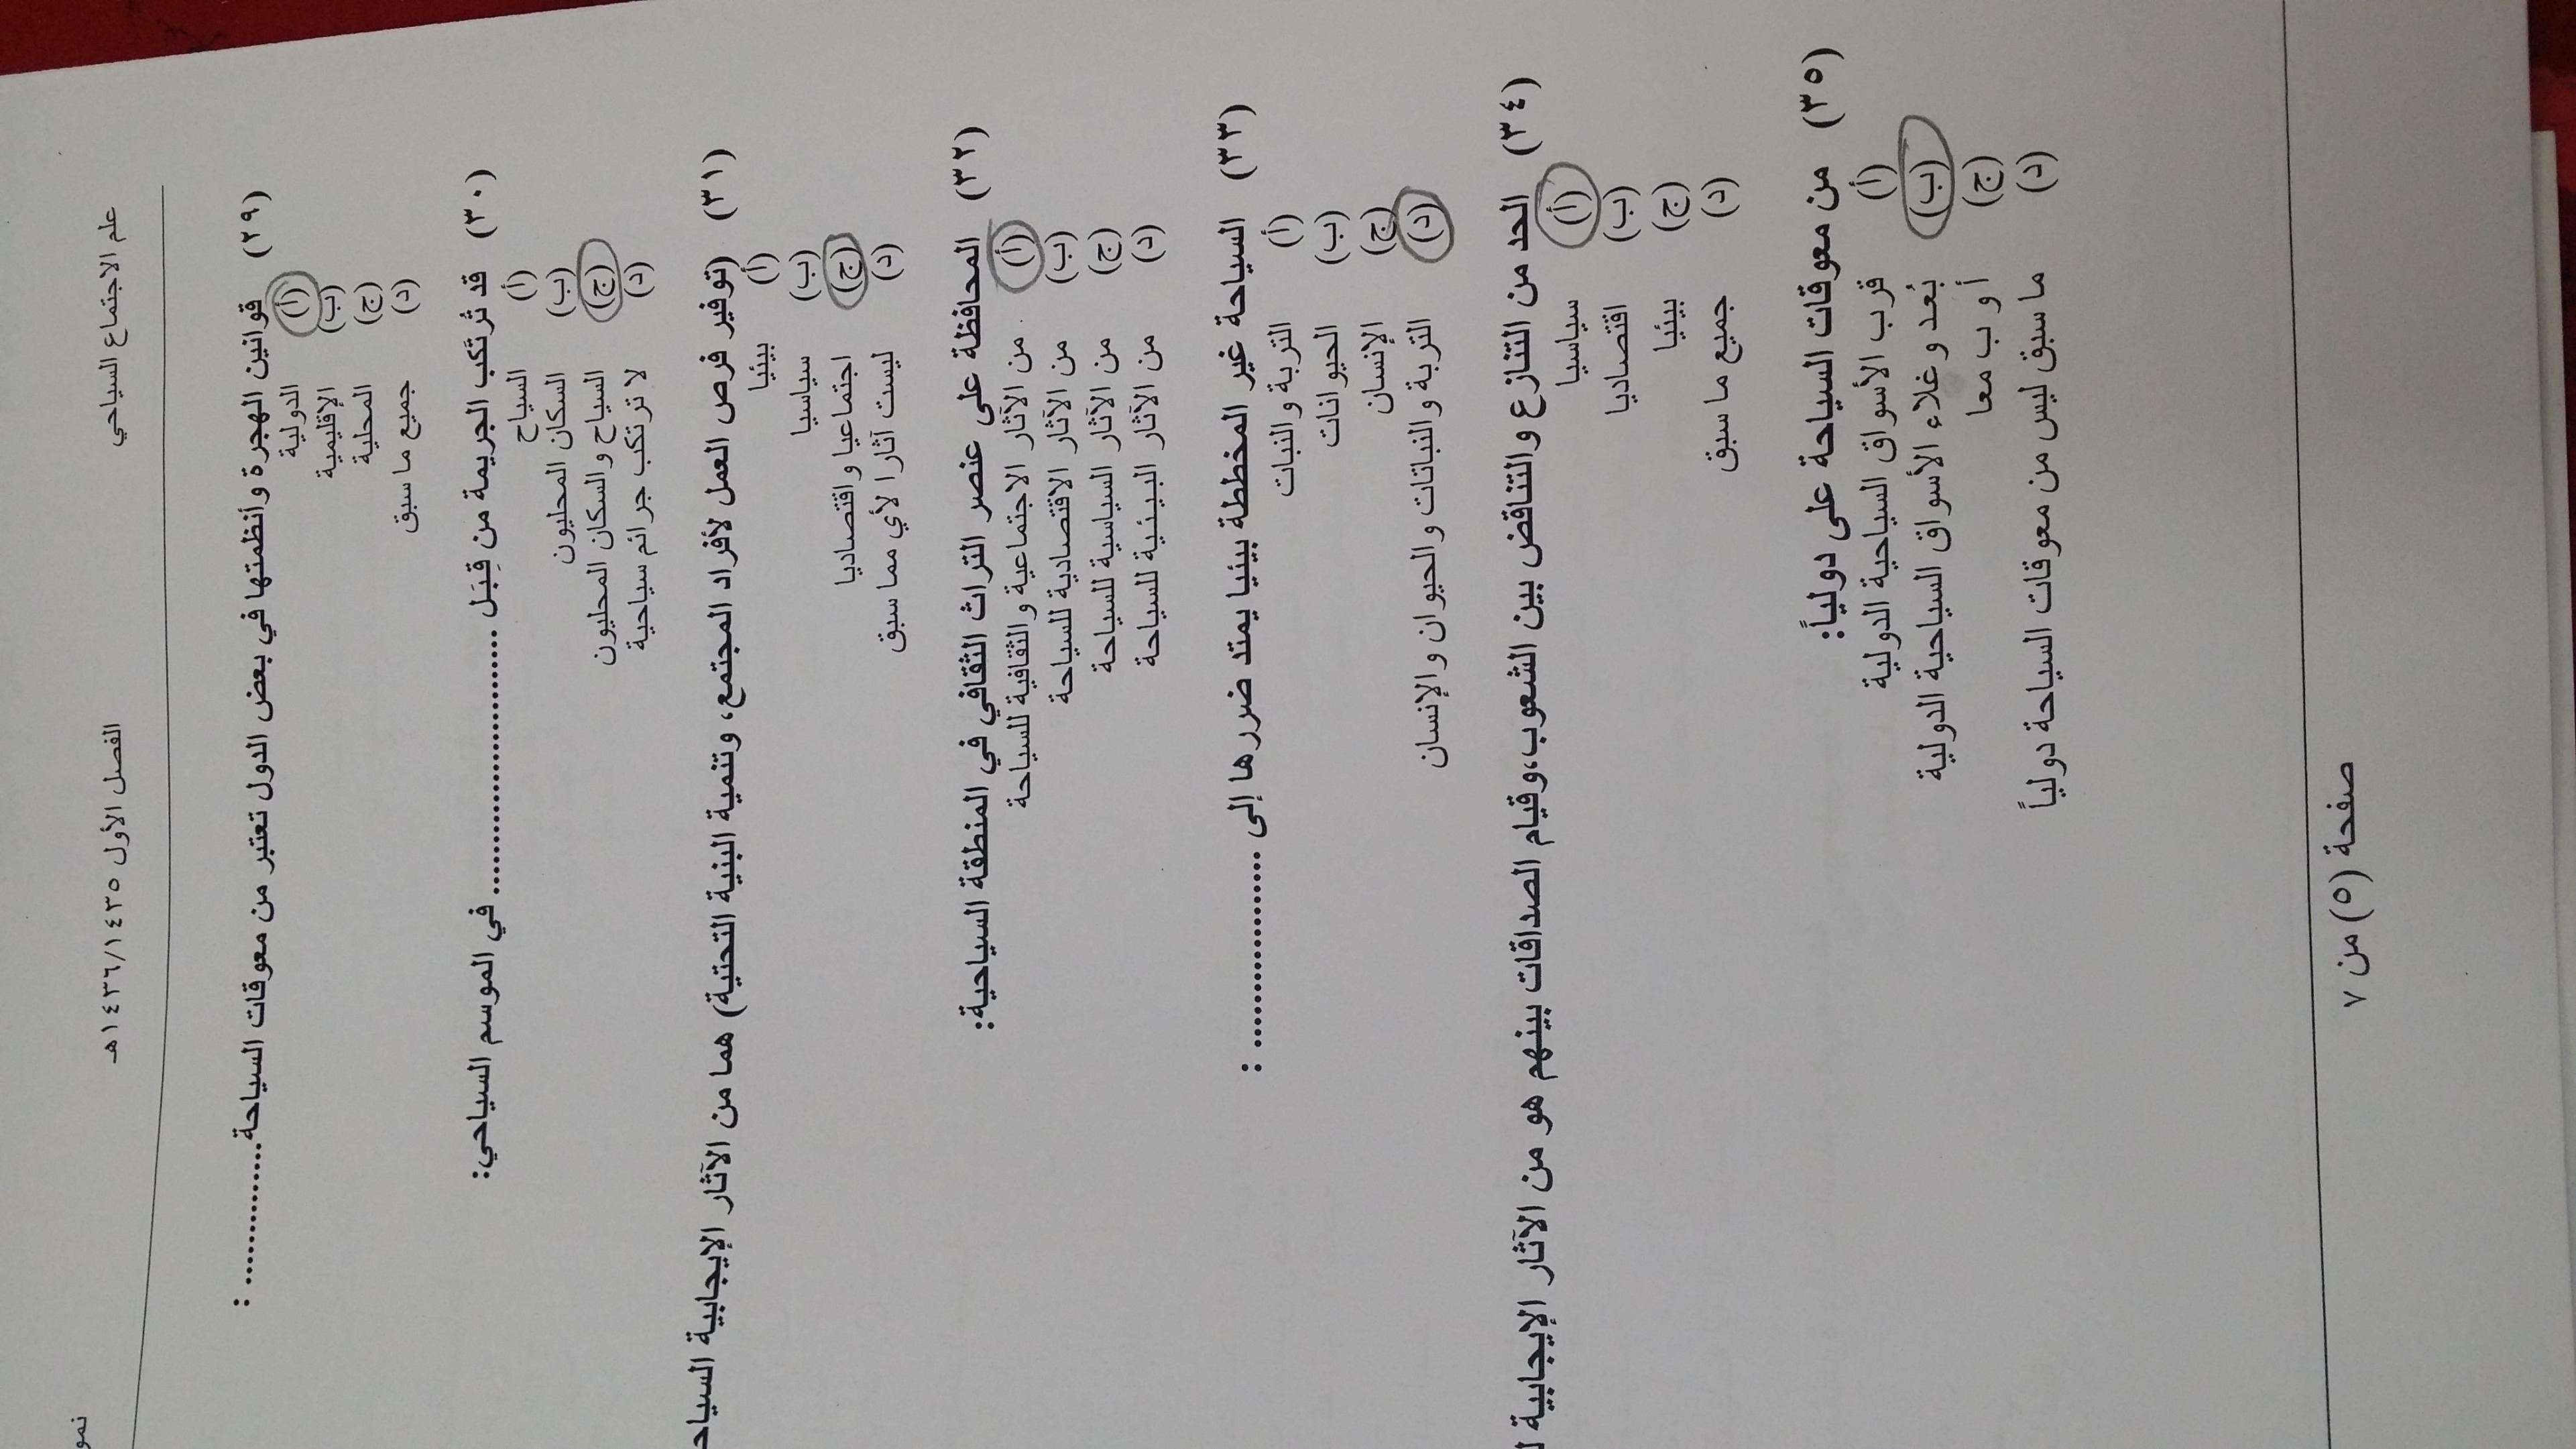 علم الاجتماع السياحي الفصل الأول ١٤٣٦/١٤٣٥هـ
(٢٩) قوانين الهجرة وأنظمتها في بعض الدول تعتبر من معوقات السياحة............... :
(أ) الدولية
(ب) الإقليمية
(ج) المحلية
(د) جميع ما سبق
(٣٠) قد تُرتكب الجريمة من قِبَل .............................. في الموسم السياحي:
(أ) السياح
(ب) السكان المحليون
(ج) السياح والسكان المحليون
(د) لا ترتكب جرائم سياحية
(٣١) (توفير فرص العمل لأفراد المجتمع، وتنمية البنية التحتية) هما من الآثار الإيجابية
(أ) بيئيا
(ب) سياسيا
(ج) اجتماعيا واقتصاديا
(د) ليست آثارا لأي مما سبق
(٣٢) المحافظة على عنصر التراث الثقافي في المنطقة السياحية:
(أ) من الآثار الاجتماعية والثقافية للسياحة
(ب) من الآثار الاقتصادية للسياحة
(ج) من الآثار السياسية للسياحة
(د) من الآثار البيئية للسياحة
(٣٣) السياحة غير المخططة بيئيا يمتد ضررها إلى ..................... :
(أ) التربة والنبات
(ب) الحيوانات
(ج) الإنسان
(د) التربة والنباتات والحيوان والإنسان
(٣٤) الحد من التنازع والتناقض بين الشعوب،وقيام الصداقات بينهم هو من الآثار الإيجابية
(أ) سياسيا
(ب) اقتصاديا
(ج) بيئيا
(د) جميع ما سبق
(٣٥) من معوقات السياحة على دولياً:
(أ) قرب الأسواق السياحية الدولية
(ب) بُعد وغلاء الأسواق السياحية الدولية
(ج) أ و ب معا
(د) ما سبق ليس من معوقات السياحة دولياً
صفحة (٥) من ٧